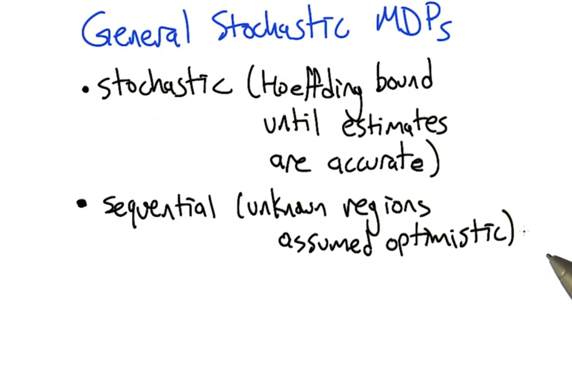 General Stochastic MDPs
• stochastic (Hoeffding bound
until estimates
are accurate)
• sequential (unknown regions
assumed optimistic)